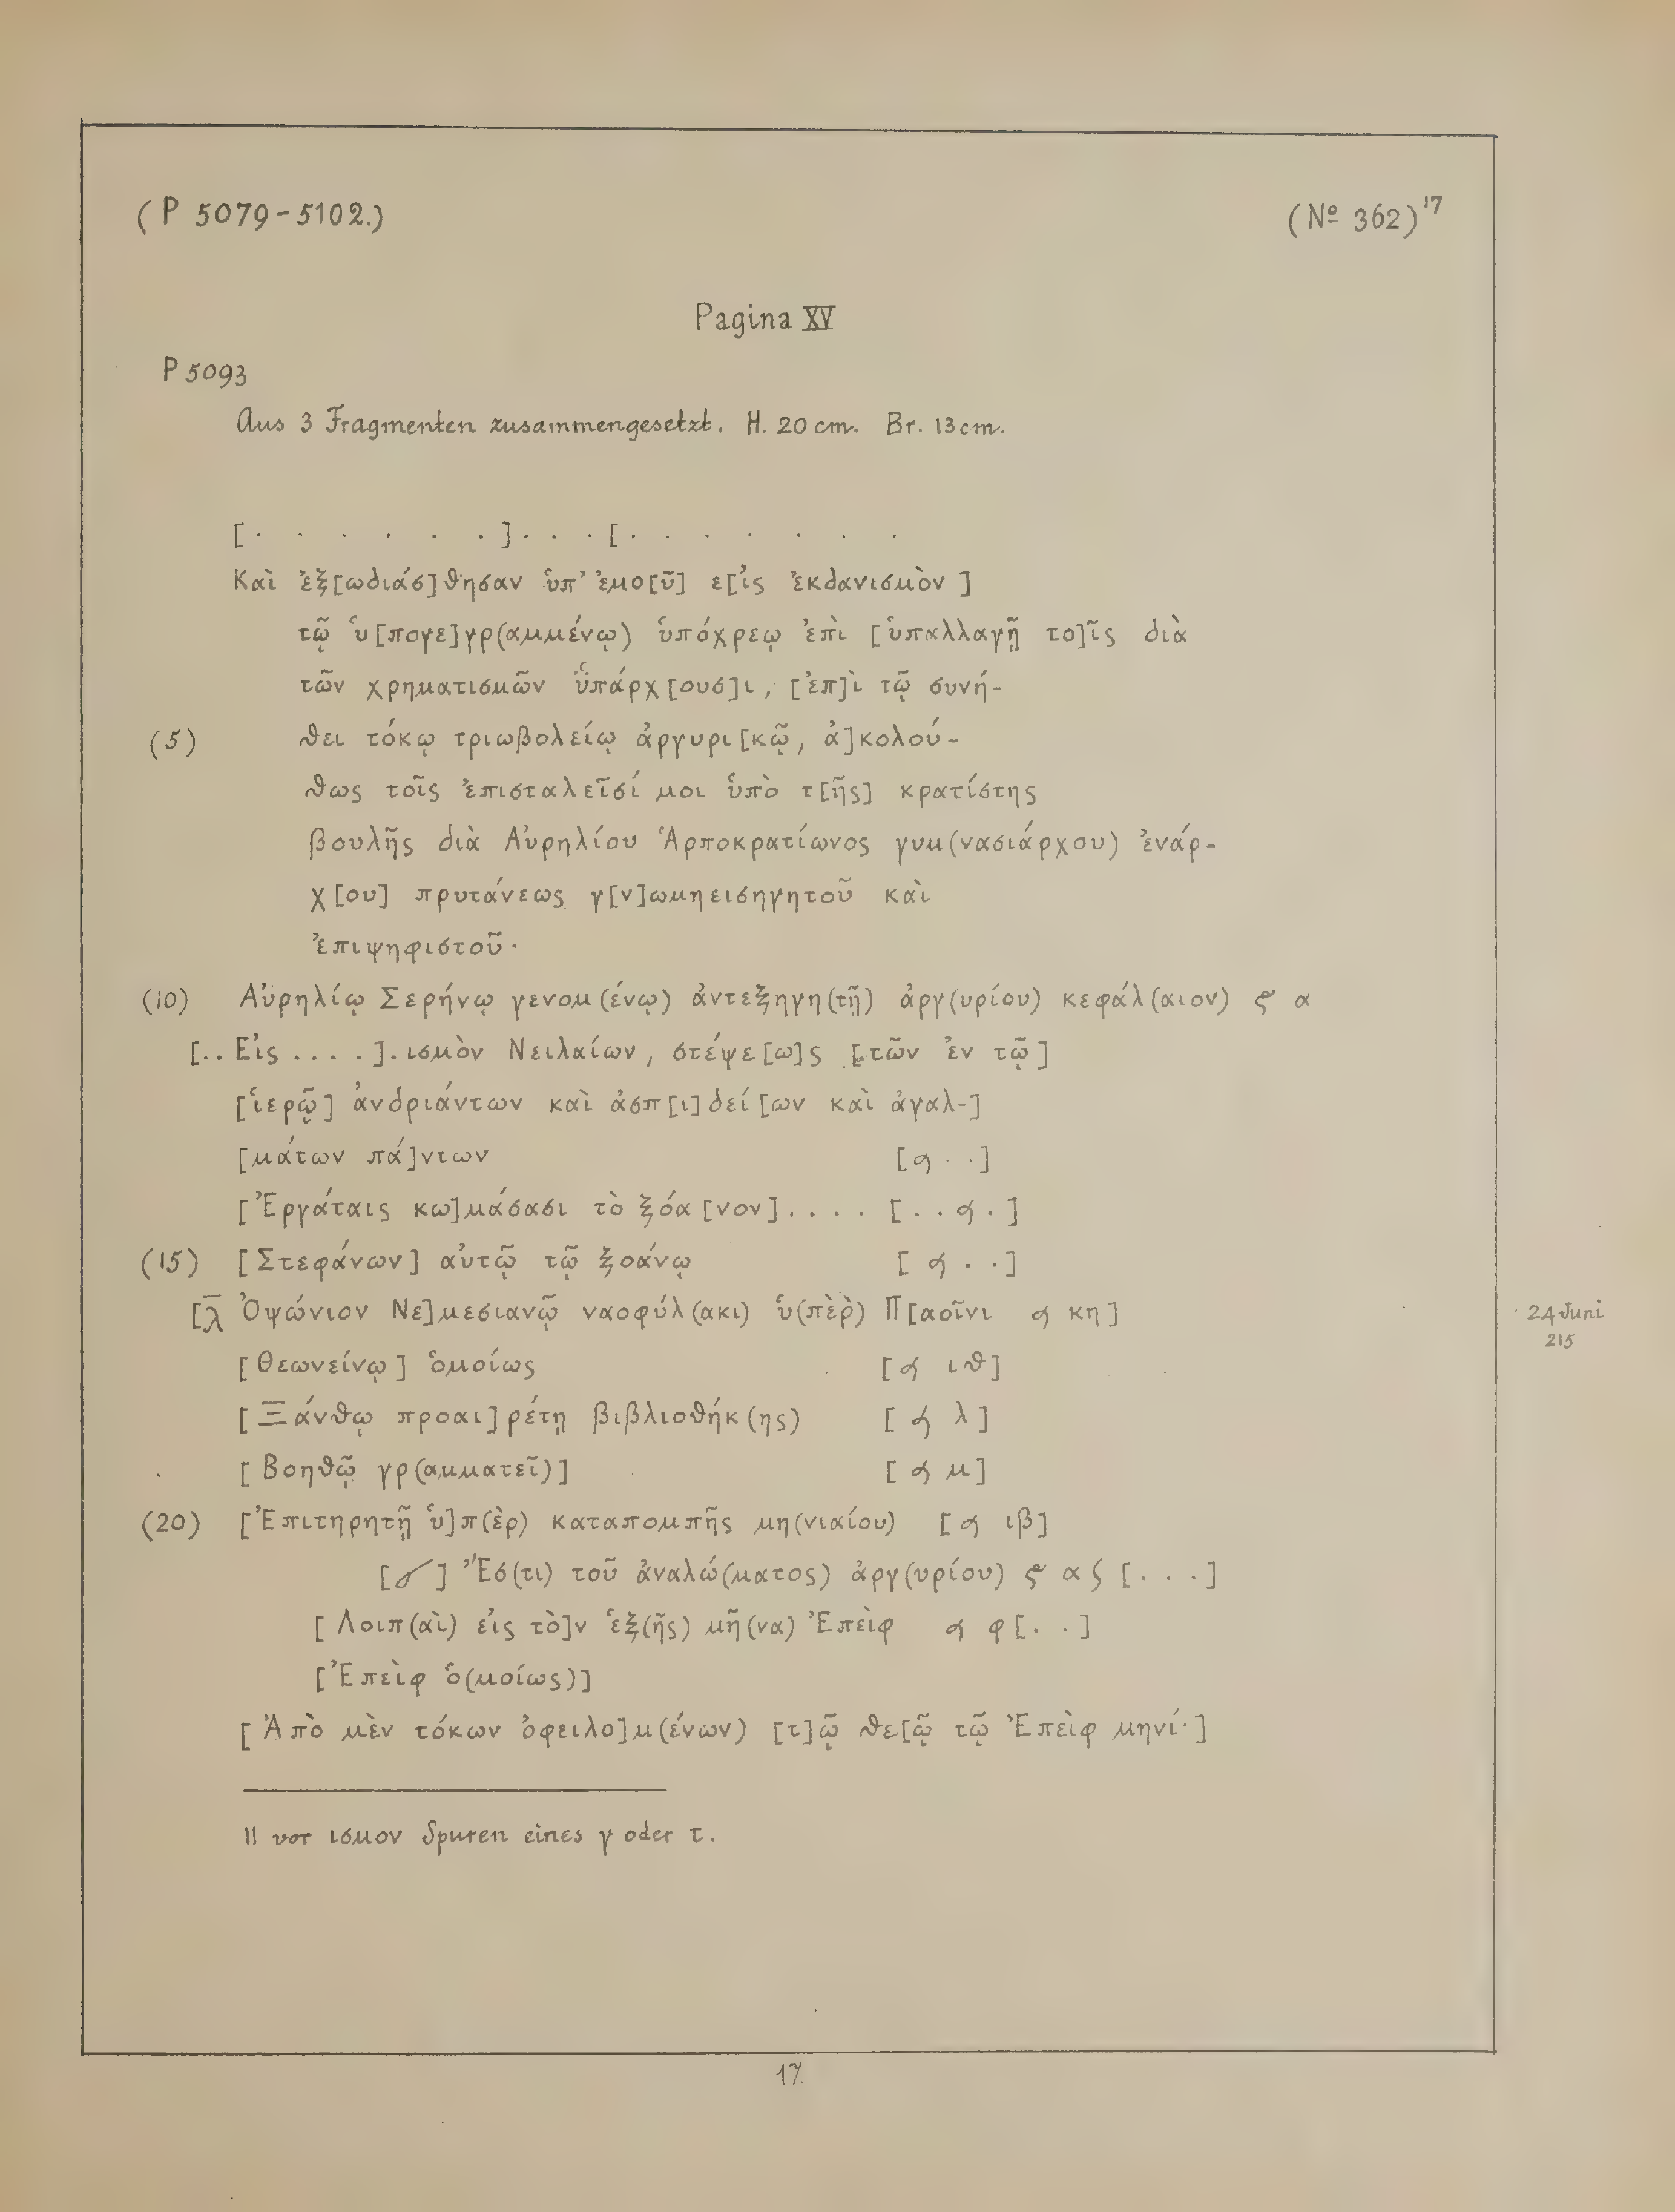 (P 5079-5102.)
(Nº 362) 17
Pagina XV
P 5093
Aus 3 Fragmenten zusammengesetzt. H. 20 cm. Br. 13 cm.
[. . . . . . .] . . . [. . . . . . .
Καὶ ἐξ[ωδιάσ]θησαν ὑπ' ἐμο[ῦ] ε[ἰς ἐκδανισμὸν]
τῷ ὑ[πογε]γρ(αμμένῳ) ὑπόχρεῳ ἐπὶ [ὑπαλλαγῇ το]ῖς διὰ
τῶν χρηματισμῶν ὑπάρχ[ουσ]ι, [ἐπ]ὶ τῷ συνή-
(5) θει τόκῳ τριωβολείῳ ἀργυρι[κῷ, ἀ]κολού-
θως τοῖς ἐπισταλεῖσί μοι ὑπὸ τ[ῆς] κρατίστης
βουλῆς διὰ Αὐρηλίου Ἁρποκρατίωνος γυμ(νασιάρχου) ἐνάρ-
χ[ου] πρυτάνεως γ[ν]ωμηεισηγητοῦ καὶ
ἐπιψηφιστοῦ·
(10) Αὐρηλίῳ Σερήνῳ γενομ(ένῳ) ἀντεξηγη(τῇ) ἀργ(υρίου) κεφάλ(αιον) ϛ α
[.. Εἰς . . . .]. ισμὸν Νειλαίων, στέψε[ω]ς [τῶν ἐν τῷ]
[ἱερῷ] ἀνδριάντων καὶ ἀσπ[ι]δεί[ων καὶ ἀγαλ-]
[μάτων πά]ντων [𐅻 . .]
[Ἐργάταις κω]μάσασι τὸ ξόα[νον] . . . . [. . 𐅻 .]
(15) [Στεφάνων] αὐτῷ τῷ ξοάνῳ [𐅻 . .]
[λ̅ Ὀψώνιον Νε]μεσιανῷ ναοφύλ(ακι) ὑ(πὲρ) Π[αοῖνι 𐅻 κη]
24 Juni
215
[Θεωνείνῳ] ὁμοίως [𐅻 ιθ]
[Ξάνθῳ προαι]ρέτῃ βιβλιοθήκ(ης) [𐅻 λ]
[Βοηθῷ γρ(αμματεῖ)] [𐅻 μ]
(20) [Ἐπιτηρητῇ ὑ]π(ὲρ) καταπομπῆς μη(νιαίου) [𐅻 ιβ]
[] Ἔσ(τι) τοῦ ἀναλώ(ματος) ἀργ(υρίου) ϛ α ϛ [. . .]
[Λοιπ(αὶ) εἰς τὸ]ν ἑξ(ῆς) μῆ(να) Ἐπεὶφ 𐅻 φ[. .]
[Ἐπεὶφ ὁ(μοίως)]
[Ἀπὸ μὲν τόκων ὀφειλο]μ(ένων) [τ]ῷ θε[ῷ τῷ Ἐπεὶφ μηνί·]
11 vor ισμον Spuren eines γ oder τ.
17.